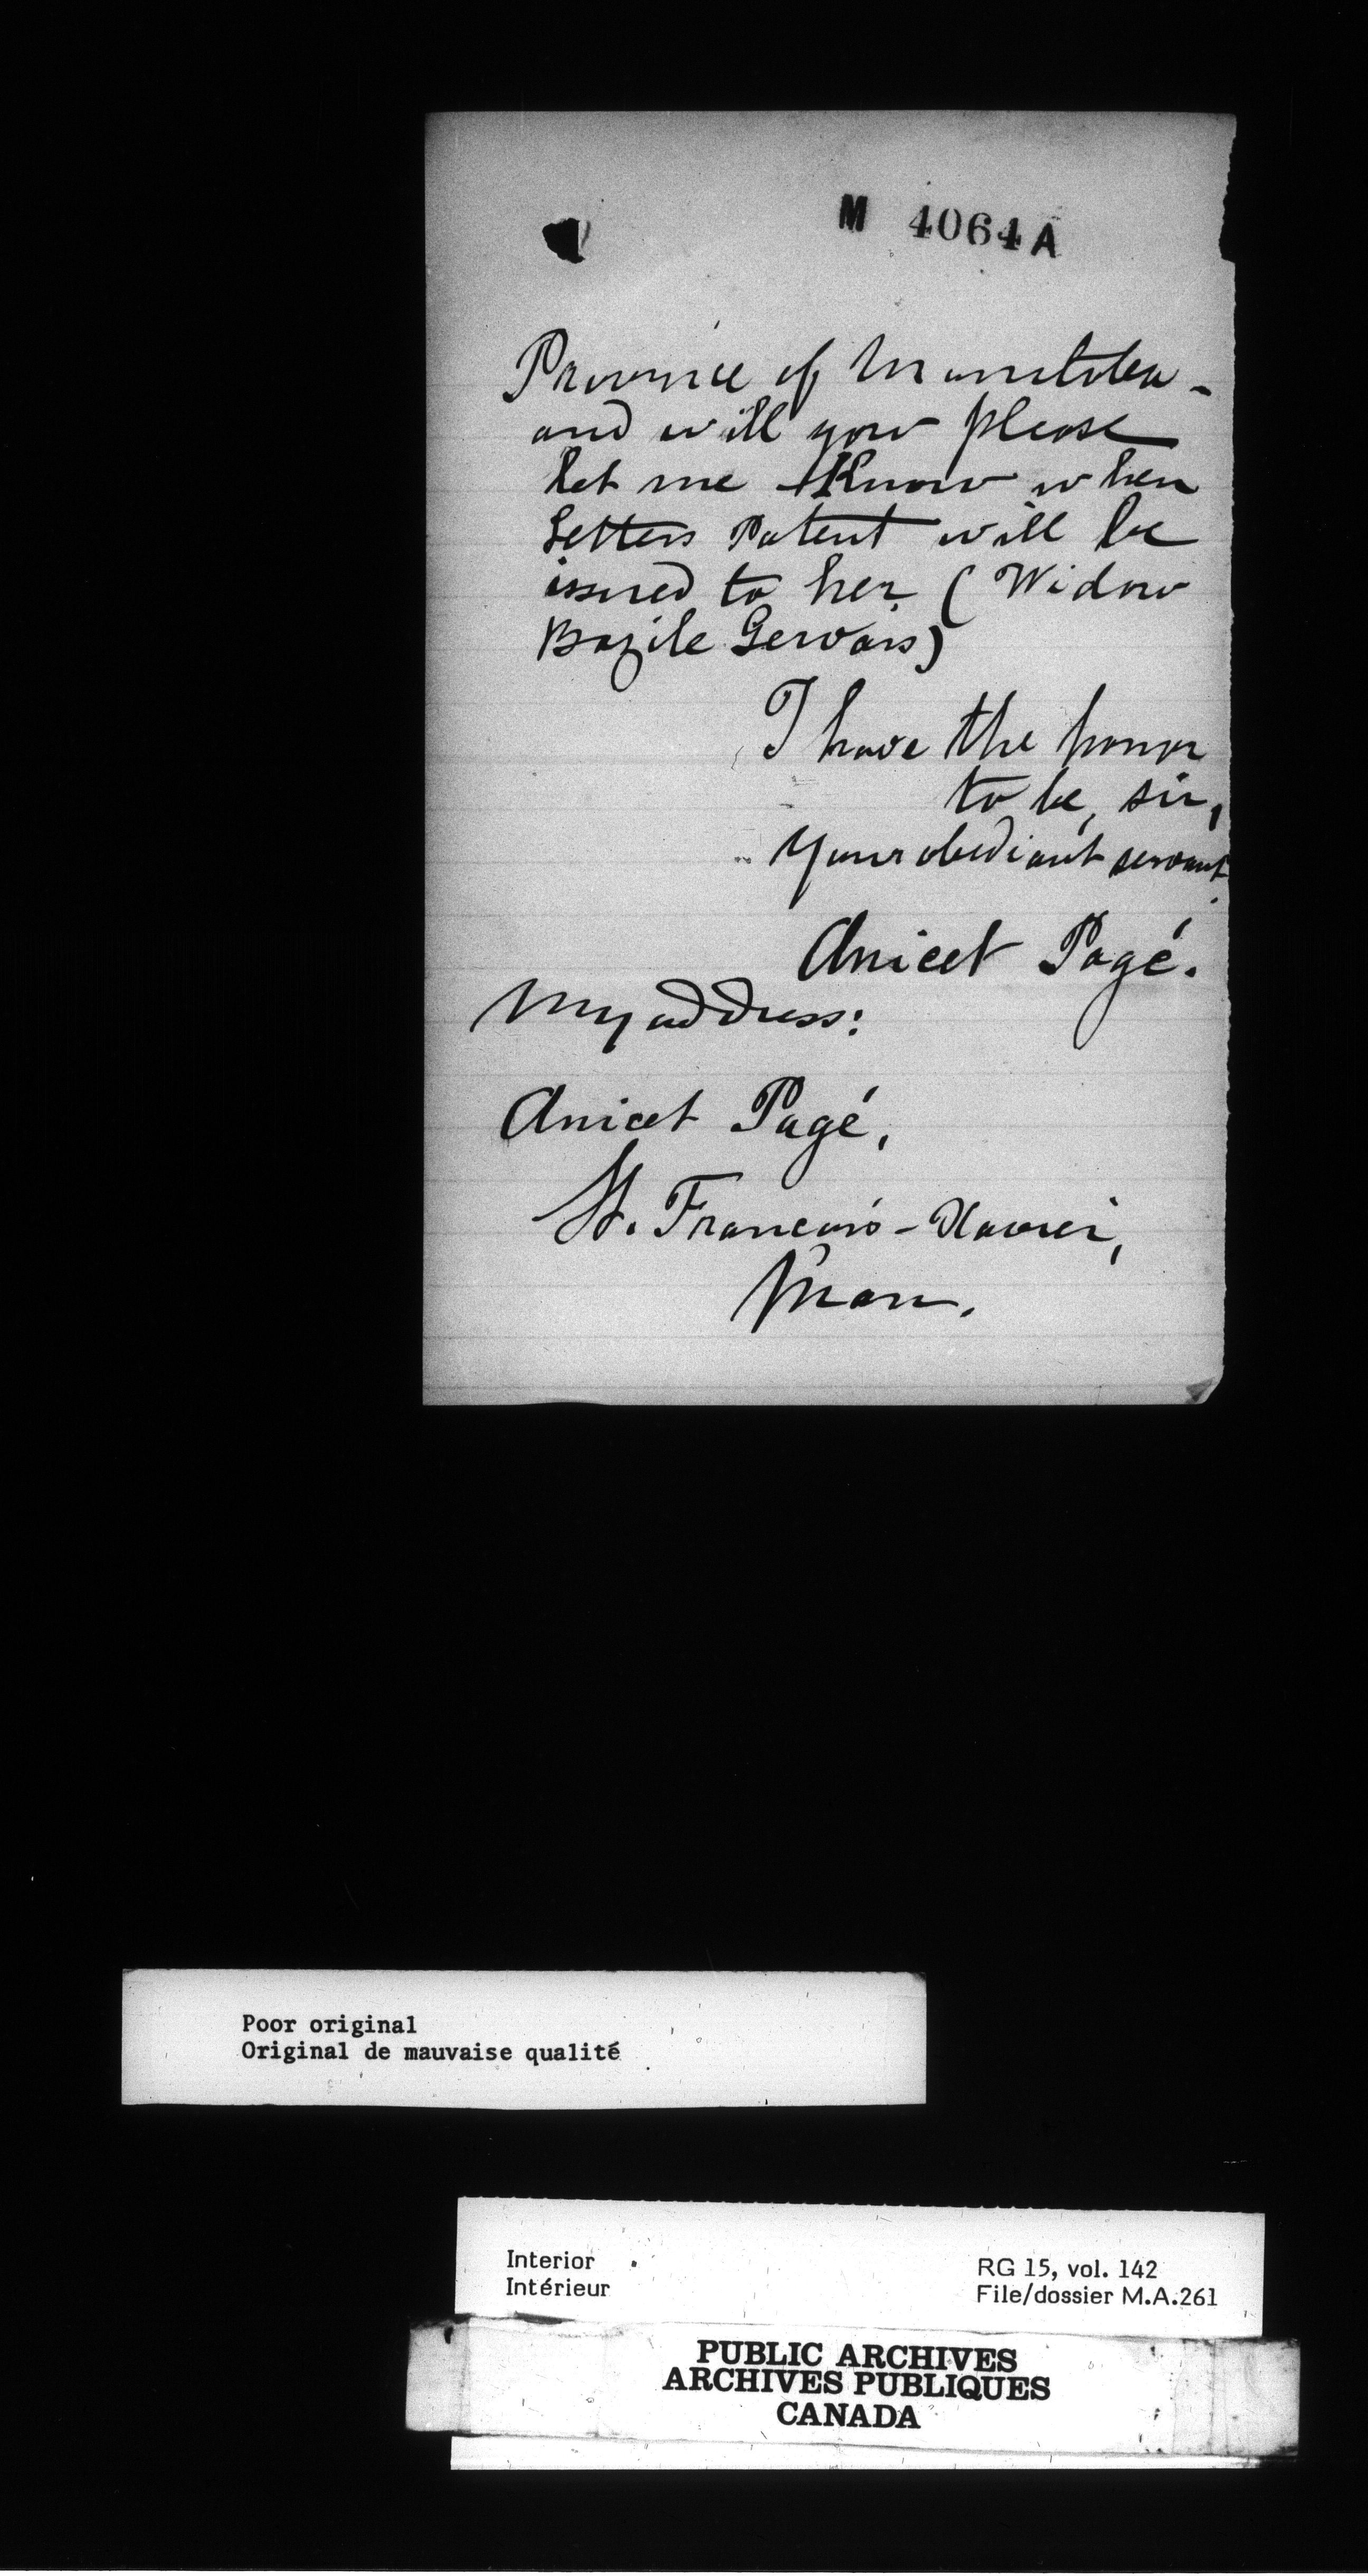 M 4064 A
Province of Manitoba -
and will you please
let me Know when
Letters Patent will be
issued to her (Widow
Bazile Gervais)
I have the honor
to be, sir,
Your obediant servant.
Anicet Pagé.
My address:
Anicet Pagé,
St. François-Xavier,
Man.
Poor original
Original de mauvaise qualité
Interior
Intérieur
RG 15, vol. 142
File/dossier M.A.261
PUBLIC ARCHIVES
ARCHIVES PUBLIQUES
CANADA